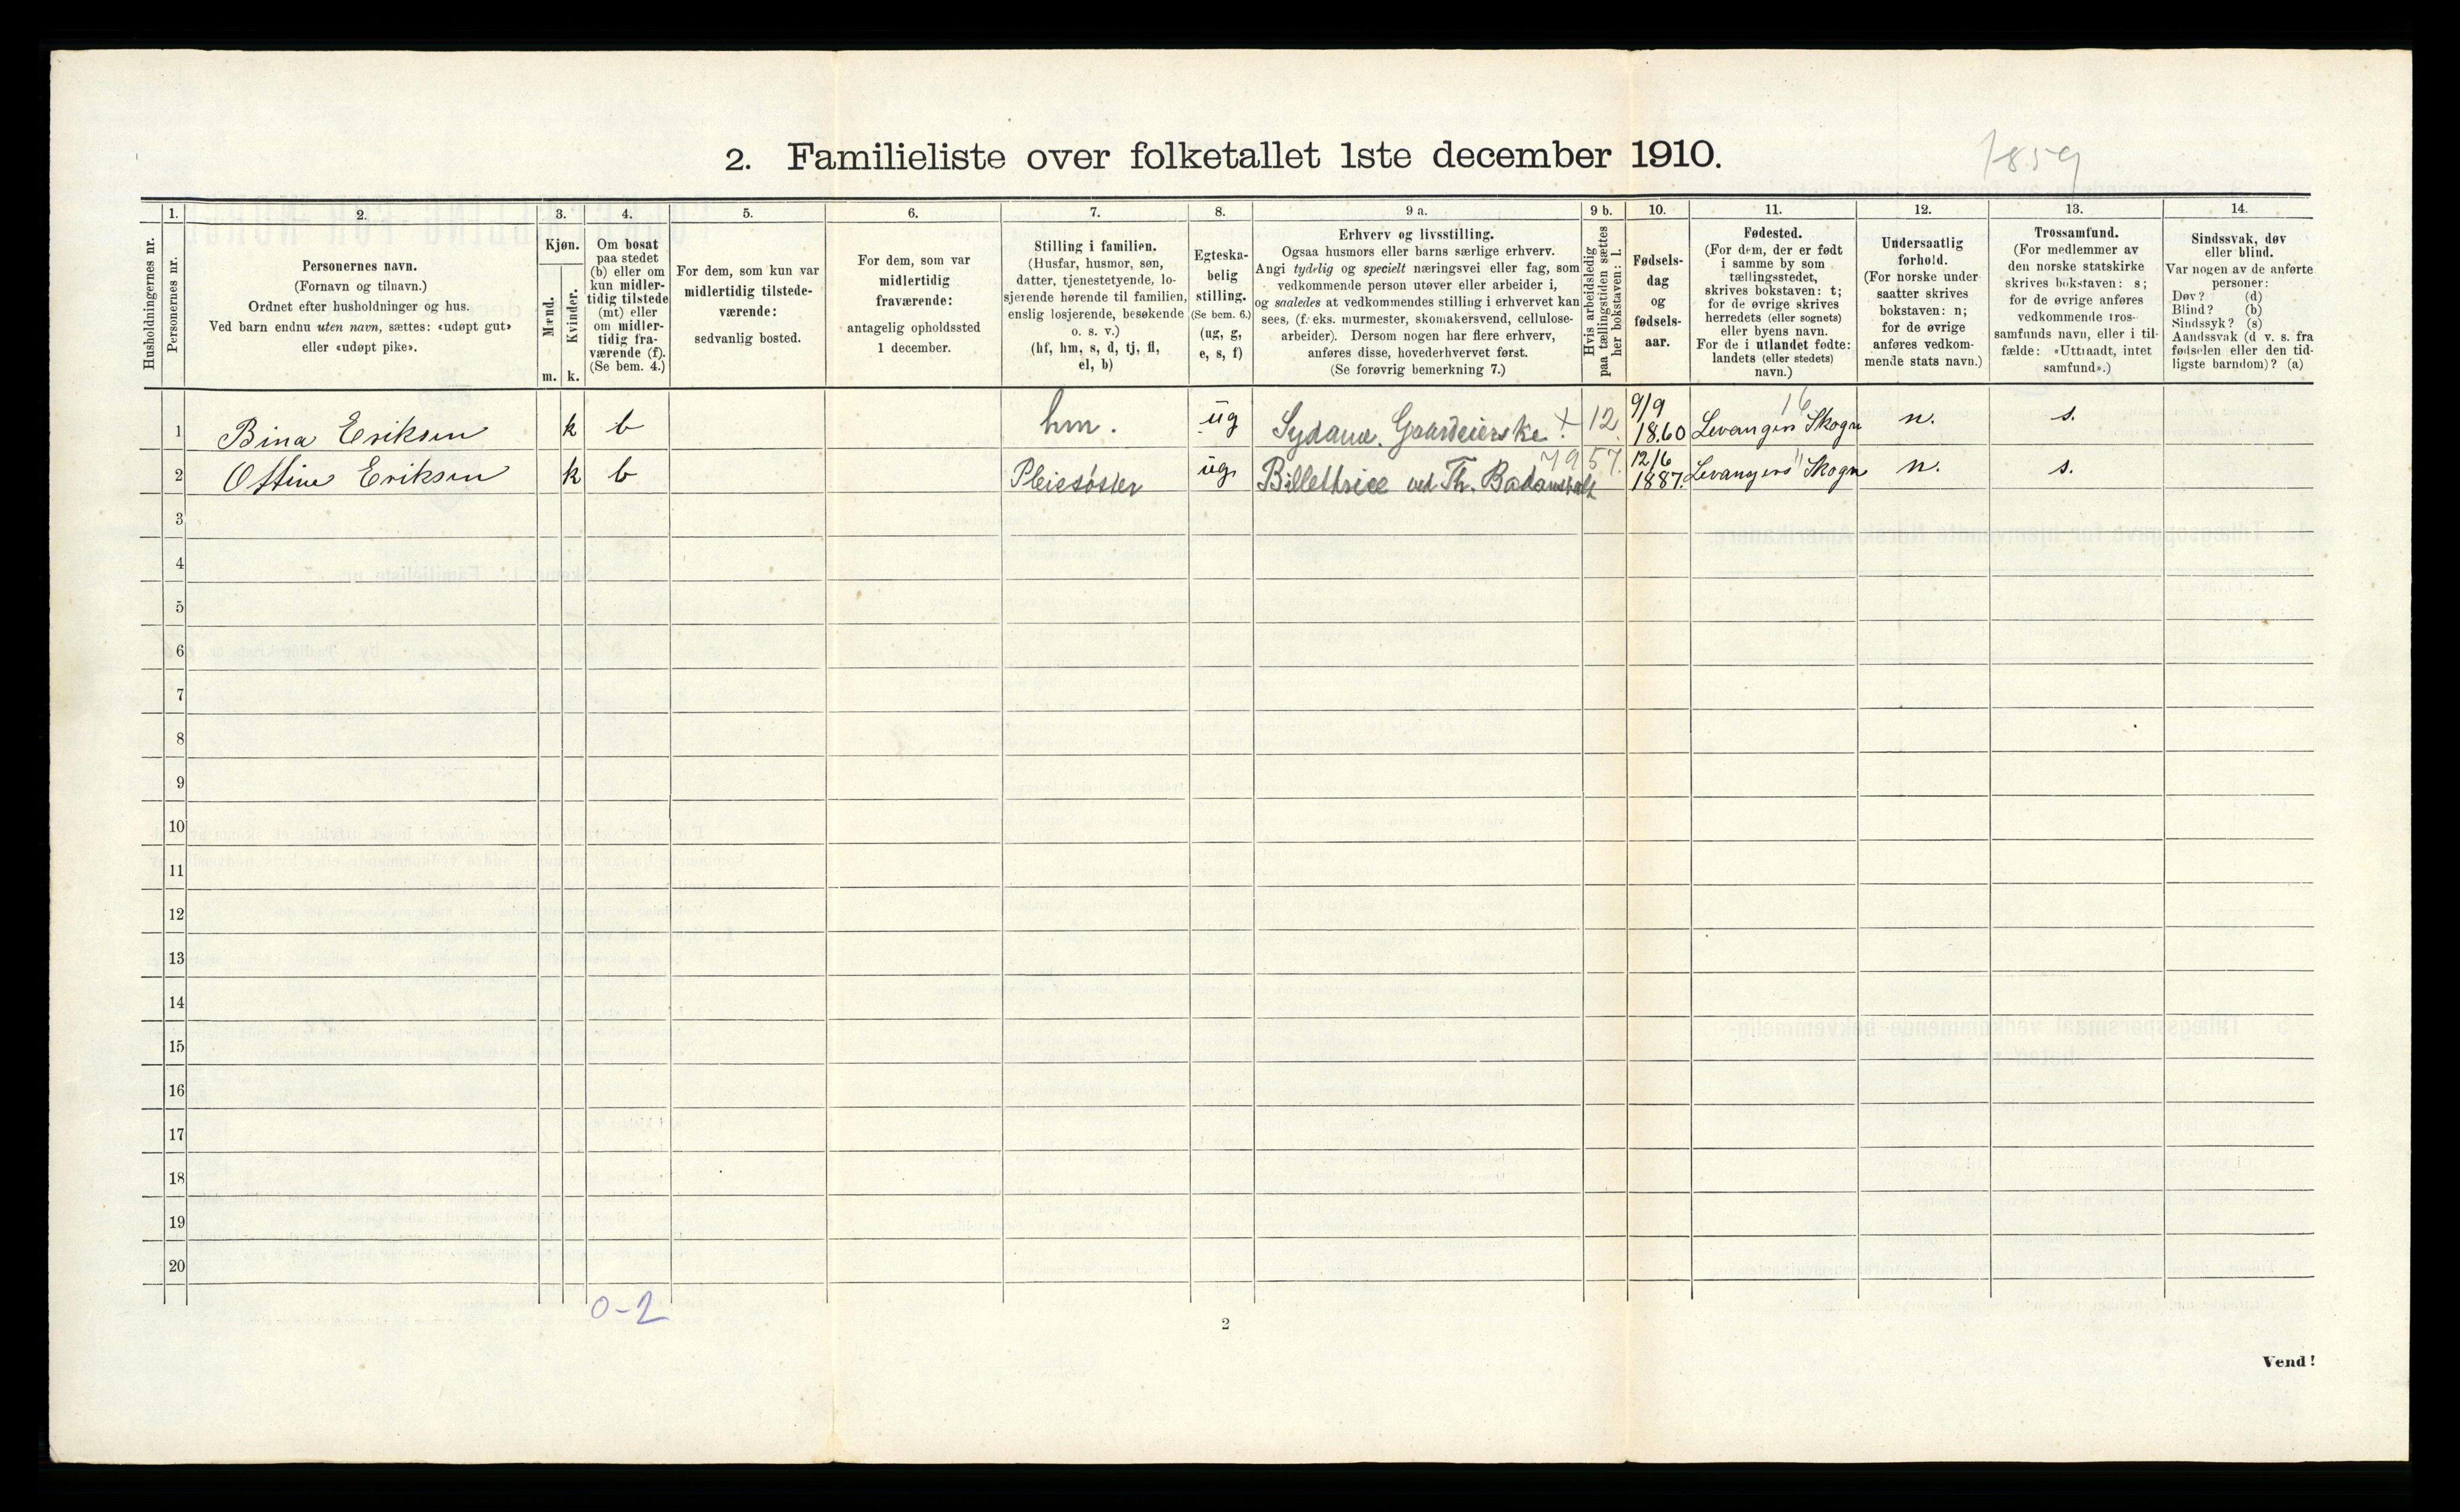 1859
2. Familieliste over folketallet 1ste december 1910.
Husholdningernes nr.
1.
Personernes nr.
2.
Personernes navn.
(Fornavn og tilnavn.)
Ordnet efter husholdninger og hus.
Ved barn endnu uten navn, sættes: «udøpt gut»
eller «udøpt pike».
3.
Kjøn.
Mænd.
Kvinder.
m. k.
4.
Om bosat
paa stedet
(b) eller om
kun midler-
tidig tilstede
(mt) eller
om midler-
tidig fra-
værende (f).
(Se bem. 4.)
5.
For dem, som kun var
midlertidig tilstede-
værende:
sedvanlig bosted.
6.
For dem, som var
midlertidig
fraværende:
antagelig opholdssted
1 december.
7.
Stilling i familien.
(Husfar, husmor, søn,
datter, tjenestetyende, lo-
sjerende hørende til familien,
enslig losjerende, besøkende
o. s. v.)
(hf, hm, s, d, tj, fl,
el, b)
8.
Egteska-
belig
stilling.
(Se bem. 6.)
(ug, g,
e, s, f)
9 a.
Erhverv og livsstilling.
Ogsaa husmors eller barns særlige erhverv.
Angi tydelig og specielt næringsvei eller fag, som
vedkommende person utøver eller arbeider i,
og saaledes at vedkommendes stilling i erhvervet kan
sees, (f. eks. murmester, skomakersvend, cellulose-
arbeider). Dersom nogen har flere erhverv,
anføres disse, hovederhvervet først.
(Se forøvrig bemerkning 7.)
9 b.
Hvis arbeidsledig
paa tællingstiden sættes
her bokstaven: l.
10.
Fødsels-
dag
og
fødsels-
aar.
11.
Fødested.
(For dem, der er født
i samme by som
tællingsstedet,
skrives bokstaven: t;
for de øvrige skrives
herredets (eller sognets)
eller byens navn.
For de i utlandet fødte:
landets (eller stedets)
navn.)
12.
Undersaatlig
forhold.
(For norske under-
saatter skrives
bokstaven: n;
for de øvrige
anføres vedkom-
mende stats navn.)
13.
Trossamfund.
(For medlemmer av
den norske statskirke
skrives bokstaven: s;
for de øvrige anføres
vedkommende tros-
samfunds navn, eller i til-
fælde: «Uttraadt, intet
samfund».)
14.
Sindssvak, døv
eller blind.
Var nogen av de anførte
personer:
Døv? (d)
Blind? (b)
Sindssyk? (s)
Aandssvak (d. v. s. fra
fødselen eller den tid-
ligste barndom)? (a)
1 Bina Eriksen k b hm. ug Sydame. Gaardeierske + 12. 9/9 1860 Levanger Skogn 16 n. s.
2 Ottine Eriksen k b Pleiesöster ug Billettrice ved Th. Badeanstalt 7957. 12/6 1887. Levangers Skogn " n. s.
3
4
5
6
7
8
9
10
11
12
13
14
15
16
17
18
19
20
0-2
2
Vend!